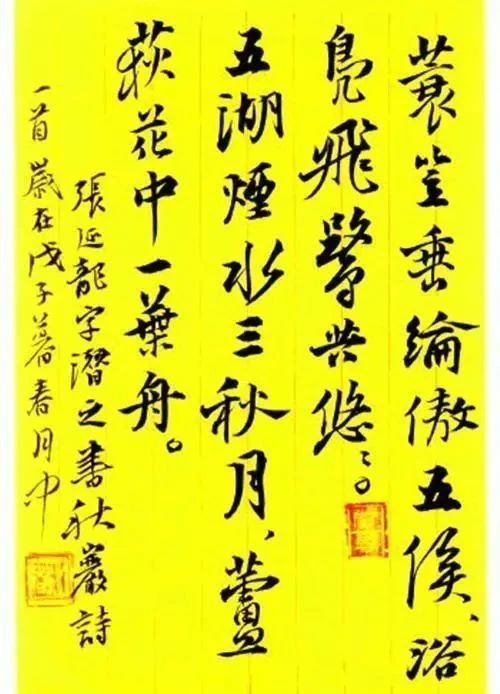 蓑笠垂綸傲五侯、浴
鳧飛鷺共悠〻。
五湖煙水三秋月、蘆
荻花中一葉舟。
張延龍字潛之書秋巖詩
一首歲在戊子暮春月中